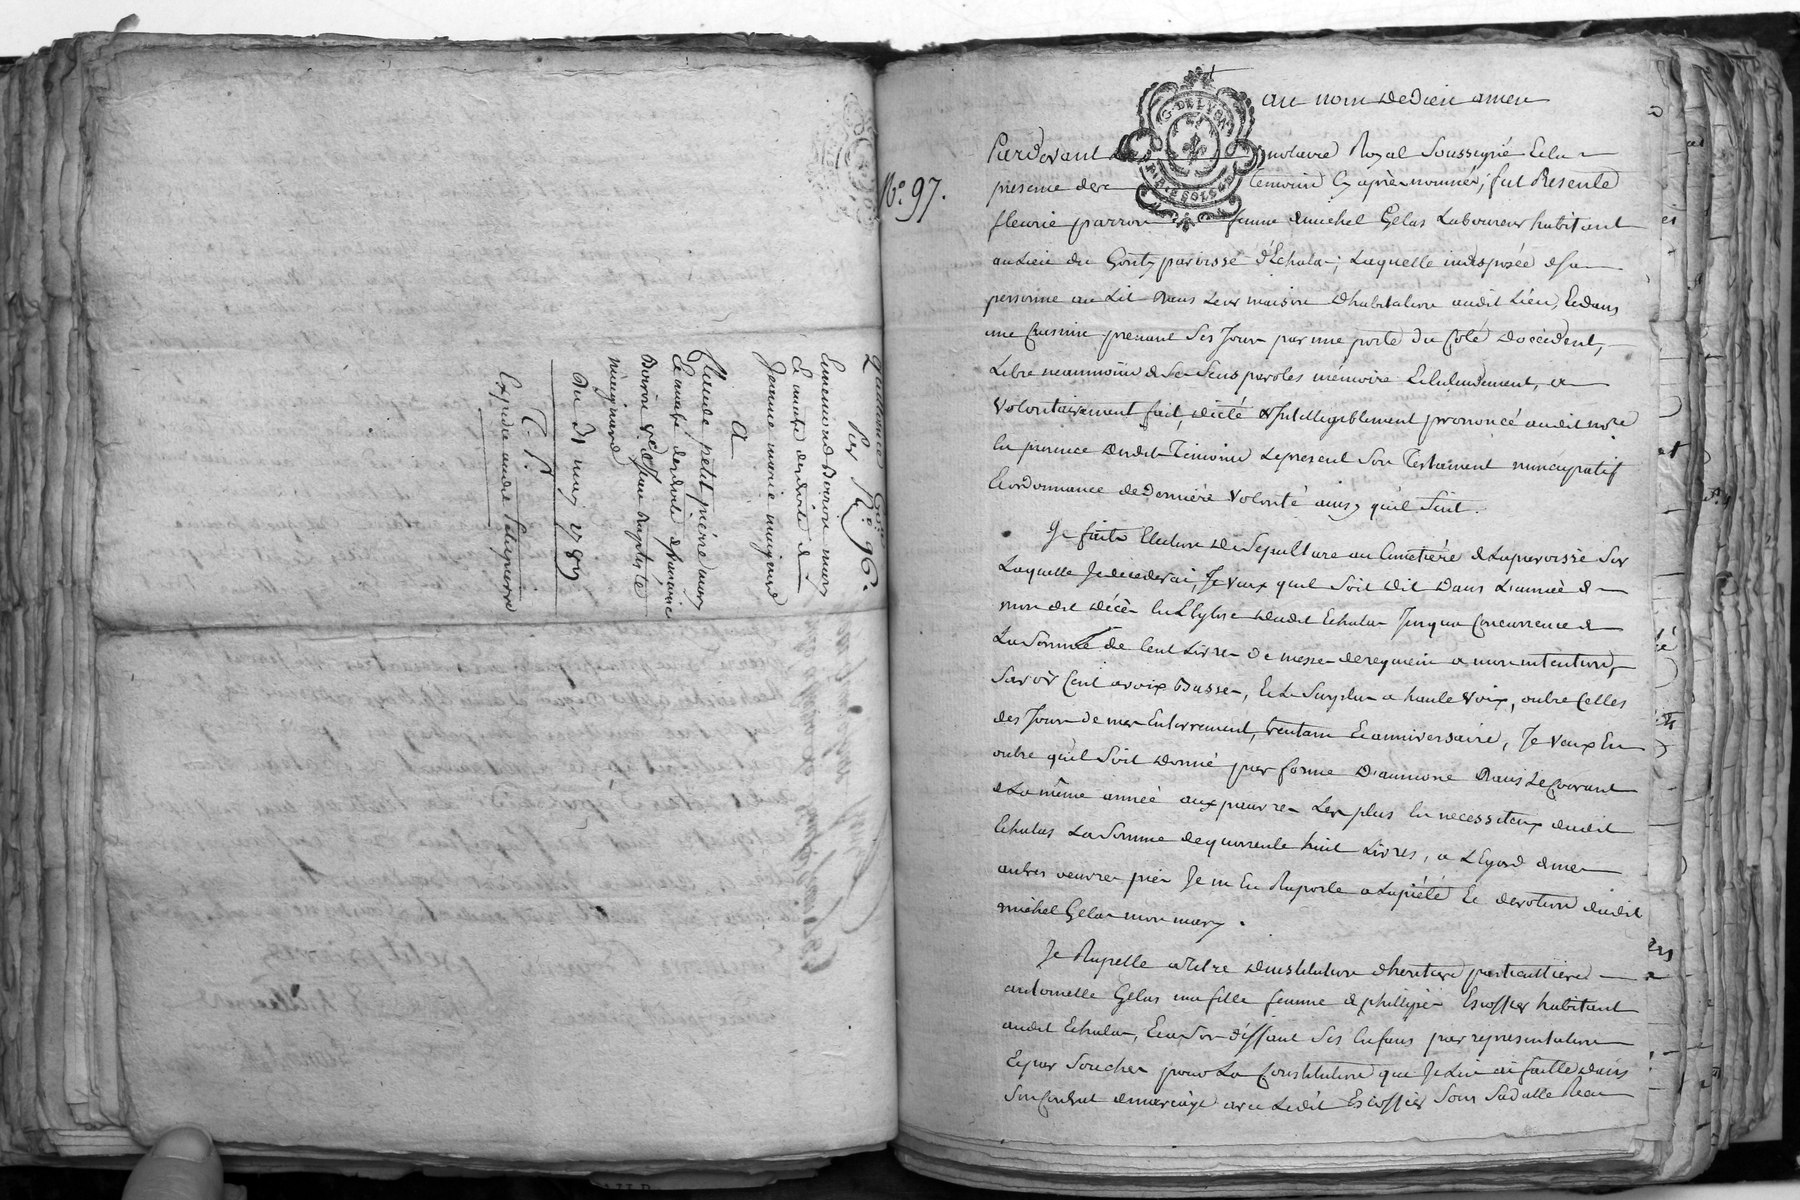 Quittance
Par
N.º 96.
Ennemond Boiron mary
Et maitre des droits de
Jeanne marie
A
Claude petit pierre mary
Et maitre des droits
Boiron Vᵉ de Jean Baptiste
mingnard
Du 31 may 178
C. T.
Expédié audit petitpierre
N.º 97.
G. DE LYON
au nom de Dieu amen
Pardevant Le notaire Royal Soussigné Et la
presence des temoins Cy après nommés, fut Presente
fleurie parron femme de michel Gelas Laboureur habitant
au Lieu du Gontz paroisse d'Echalas; Laquelle indisposée de sa
personne au Lit dans Leur maison d'habitation audit Lieu, Et dans
une Cuisine prenant Ses Jours par une porte du Coté d'occident,
Libre neammoins de Ses Sens paroles mémoire Et Entendement, a
Volontairement fait, dicté & Intelligiblement prononcé audit nore
En presence desdits Témoins Le present Son Testament nuncupatif
Et ordonnance de derniére Volonté ainsy qu'il Suit.
Je faits Election de Sépulture au Cimetiére de La paroisse Sur
Laquelle Je decederai, Je Veux qu'il Soit dit dans L'année de
mon dit décès En L'Eglise dudit Echalas Jusqu'a Concurrence de
La Somme de Cent Livres de messes de requiem a mon intention,
Savoir Cent a voix Basse, Et Le Surplus a haute Voix, outre Celles
des Jours de mes Enterrement, trentain Et anniversaire, Je Veux En
outre qu'il Soit donné par forme D'aumone dans Le Courant
de La même année aux pauvres Les plus En necessiteux dudit
Echalas La Somme de quarente huit Livres, a L'Egard de mes
autres oeuvres pies Je m'En Raporte a La piété Et devotion dudit
michel Gelas mon mary.
Je Rapelle a Titre d'institution d'heritiere particulliére
antoinette Gelas ma fille femme de phillipe Escoffier habitant
audit Echalas, Et a Son déffaut Ses Enfans par representation
Et par Souches pour La Constitution que Je Lui ai faitte dans
Son Contrat de mariage avec Ledit Escoffier Sous Sa datte